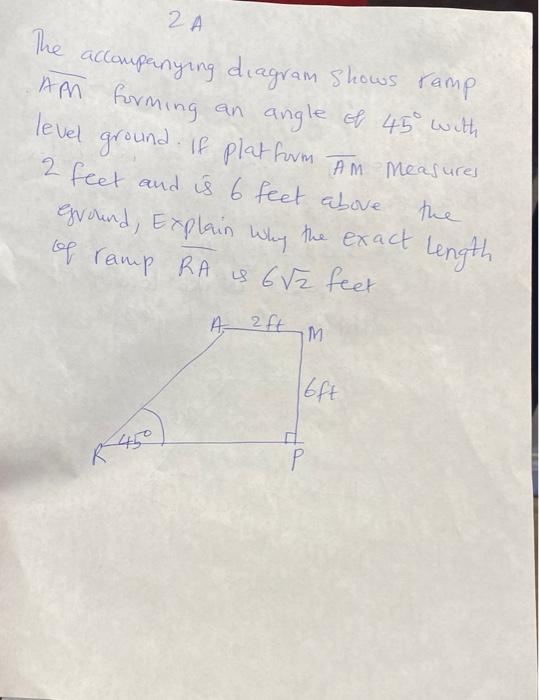 2A
The accompanying diagram shows ramp
AM forming an angle of 45° with
level ground. If platform AM Measures
2 feet and is 6 feet above the
ground, Explain why the exact length
of ramp RA is 6√2 feet
A 2ft M
6ft
R 45° P